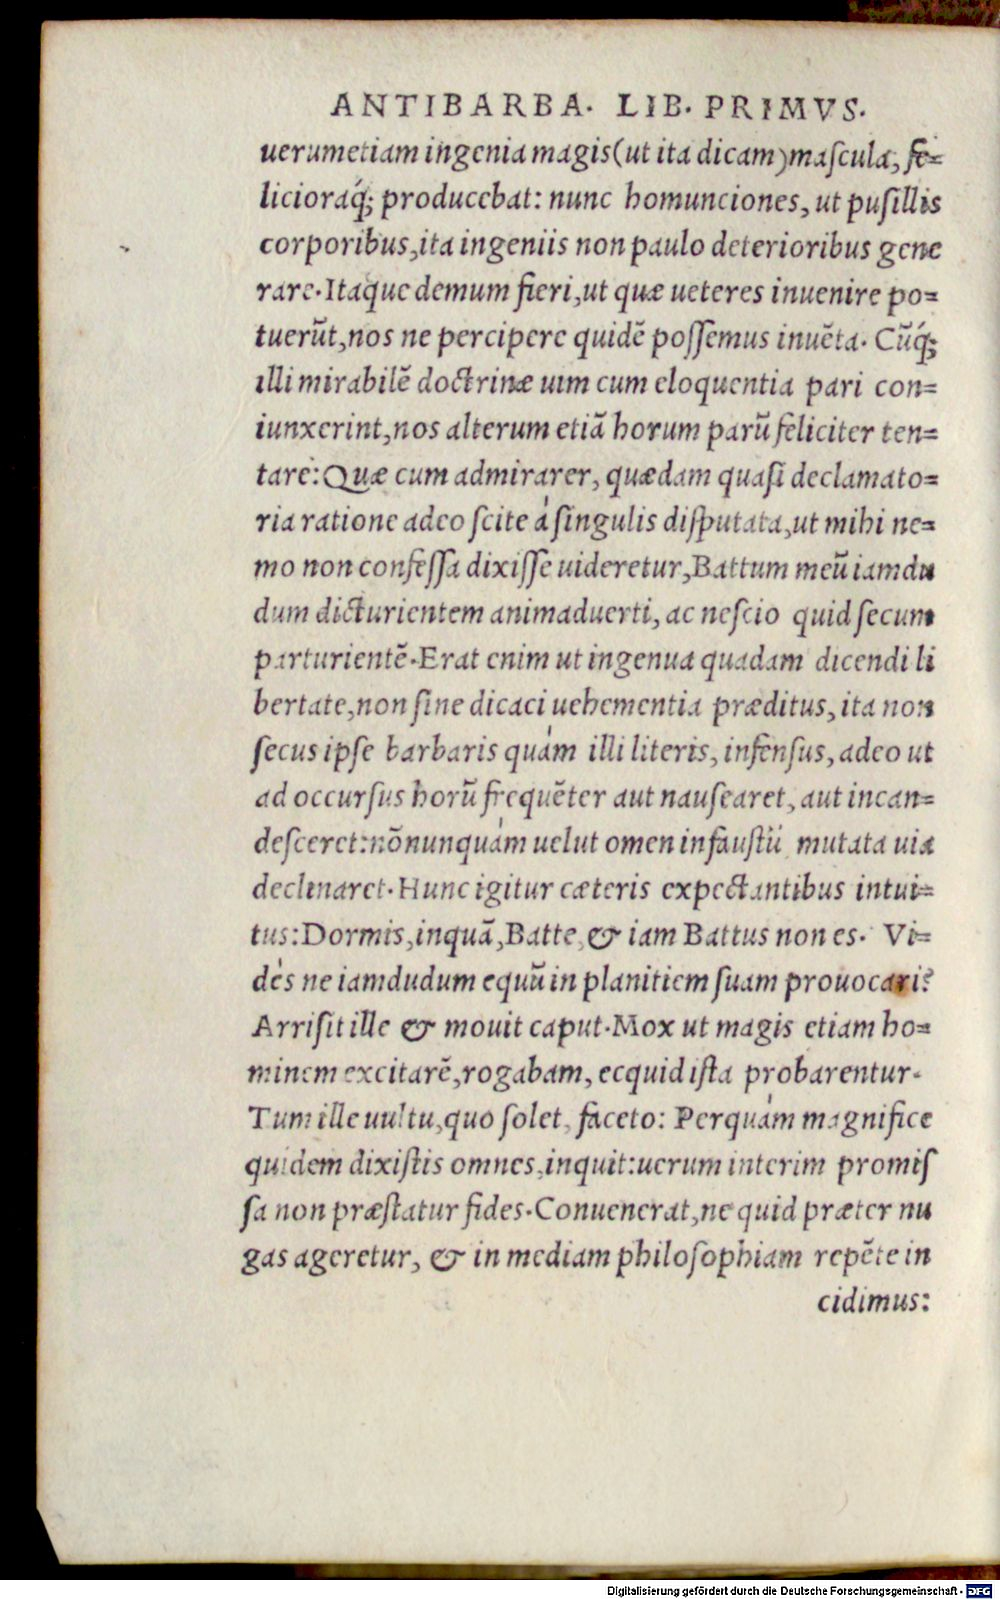 ANTIBARBA. LIB. PRIMVS.
uerumetiam ingenia magis(ut ita dicam)maſcula, fe=
licioráq; producebat: nunc homunciones, ut puſillis
corporibus,ita ingeniis non paulo deterioribus gene
rare.Itaque demum fieri,ut quæ ueteres inuenire po=
tuerũt,nos ne percipere quidẽ poſſemus inuẽta. Cũq́;
illi mirabilẽ doctrinæ uim cum eloquentia pari con=
iunxerint,nos alterum etiã horum parũ feliciter ten=
tare:Quæ cum admirarer, quædam quaſi declamato=
ria ratione adeo ſcite á ſingulis diſputata,ut mihi ne=
mo non confeſſa dixiſſe uideretur,Battum meũ iamdu
dum dicturientem animaduerti, ac neſcio quid ſecum
parturientẽ.Erat enim ut ingenua quadam dicendi li
bertate,non ſine dicaci uehementia præditus, ita non
ſecus ipſe barbaris quám illi literis, infenſus, adeo ut
ad occurſus horũ frequẽter aut nauſearet, aut incan=
deſceret:nõnunquám uelut omen infauſtũ mutata uia
declinaret.Hunc igitur cæteris expectantibus intui=
tus:Dormis,inquã,Batte, & iam Battus non es. Vi=
dés ne iamdudum equũ in planitiem ſuam prouocari?
Arriſit ille & mouit caput.Mox ut magis etiam ho=
minem excitarẽ,rogabam, ecquid iſta probarentur.
Tum ille uultu,quo ſolet, faceto: Perquám magnifice
quidem dixiſtis omnes,inquit:uerum interim promiſ
ſa non præſtatur fides.Conuenerat,ne quid præter nu
gas ageretur, & in mediam philoſophiam repẽte in
cidimus:
Digitalisierung gefördert durch die Deutsche Forschungsgemeinschaft - DFG